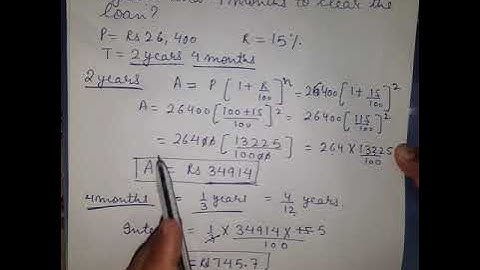 months to clear the
loan?
P= Rs 26,400 R = 15%
T = 2 years 4 months
2 years A = P [1 + R/100]^n = 26400 [1 + 15/100]^2
A = 26400 [100+15/100]^2 = 26400 [115/100]^2
= 26400 [13225/10000] = 264 × 13225/100
A = Rs 34914
4 months = 1/3 years = 4/12 years.
= 1/3 × 34914 × 15 5/100
= Rs 1745.7